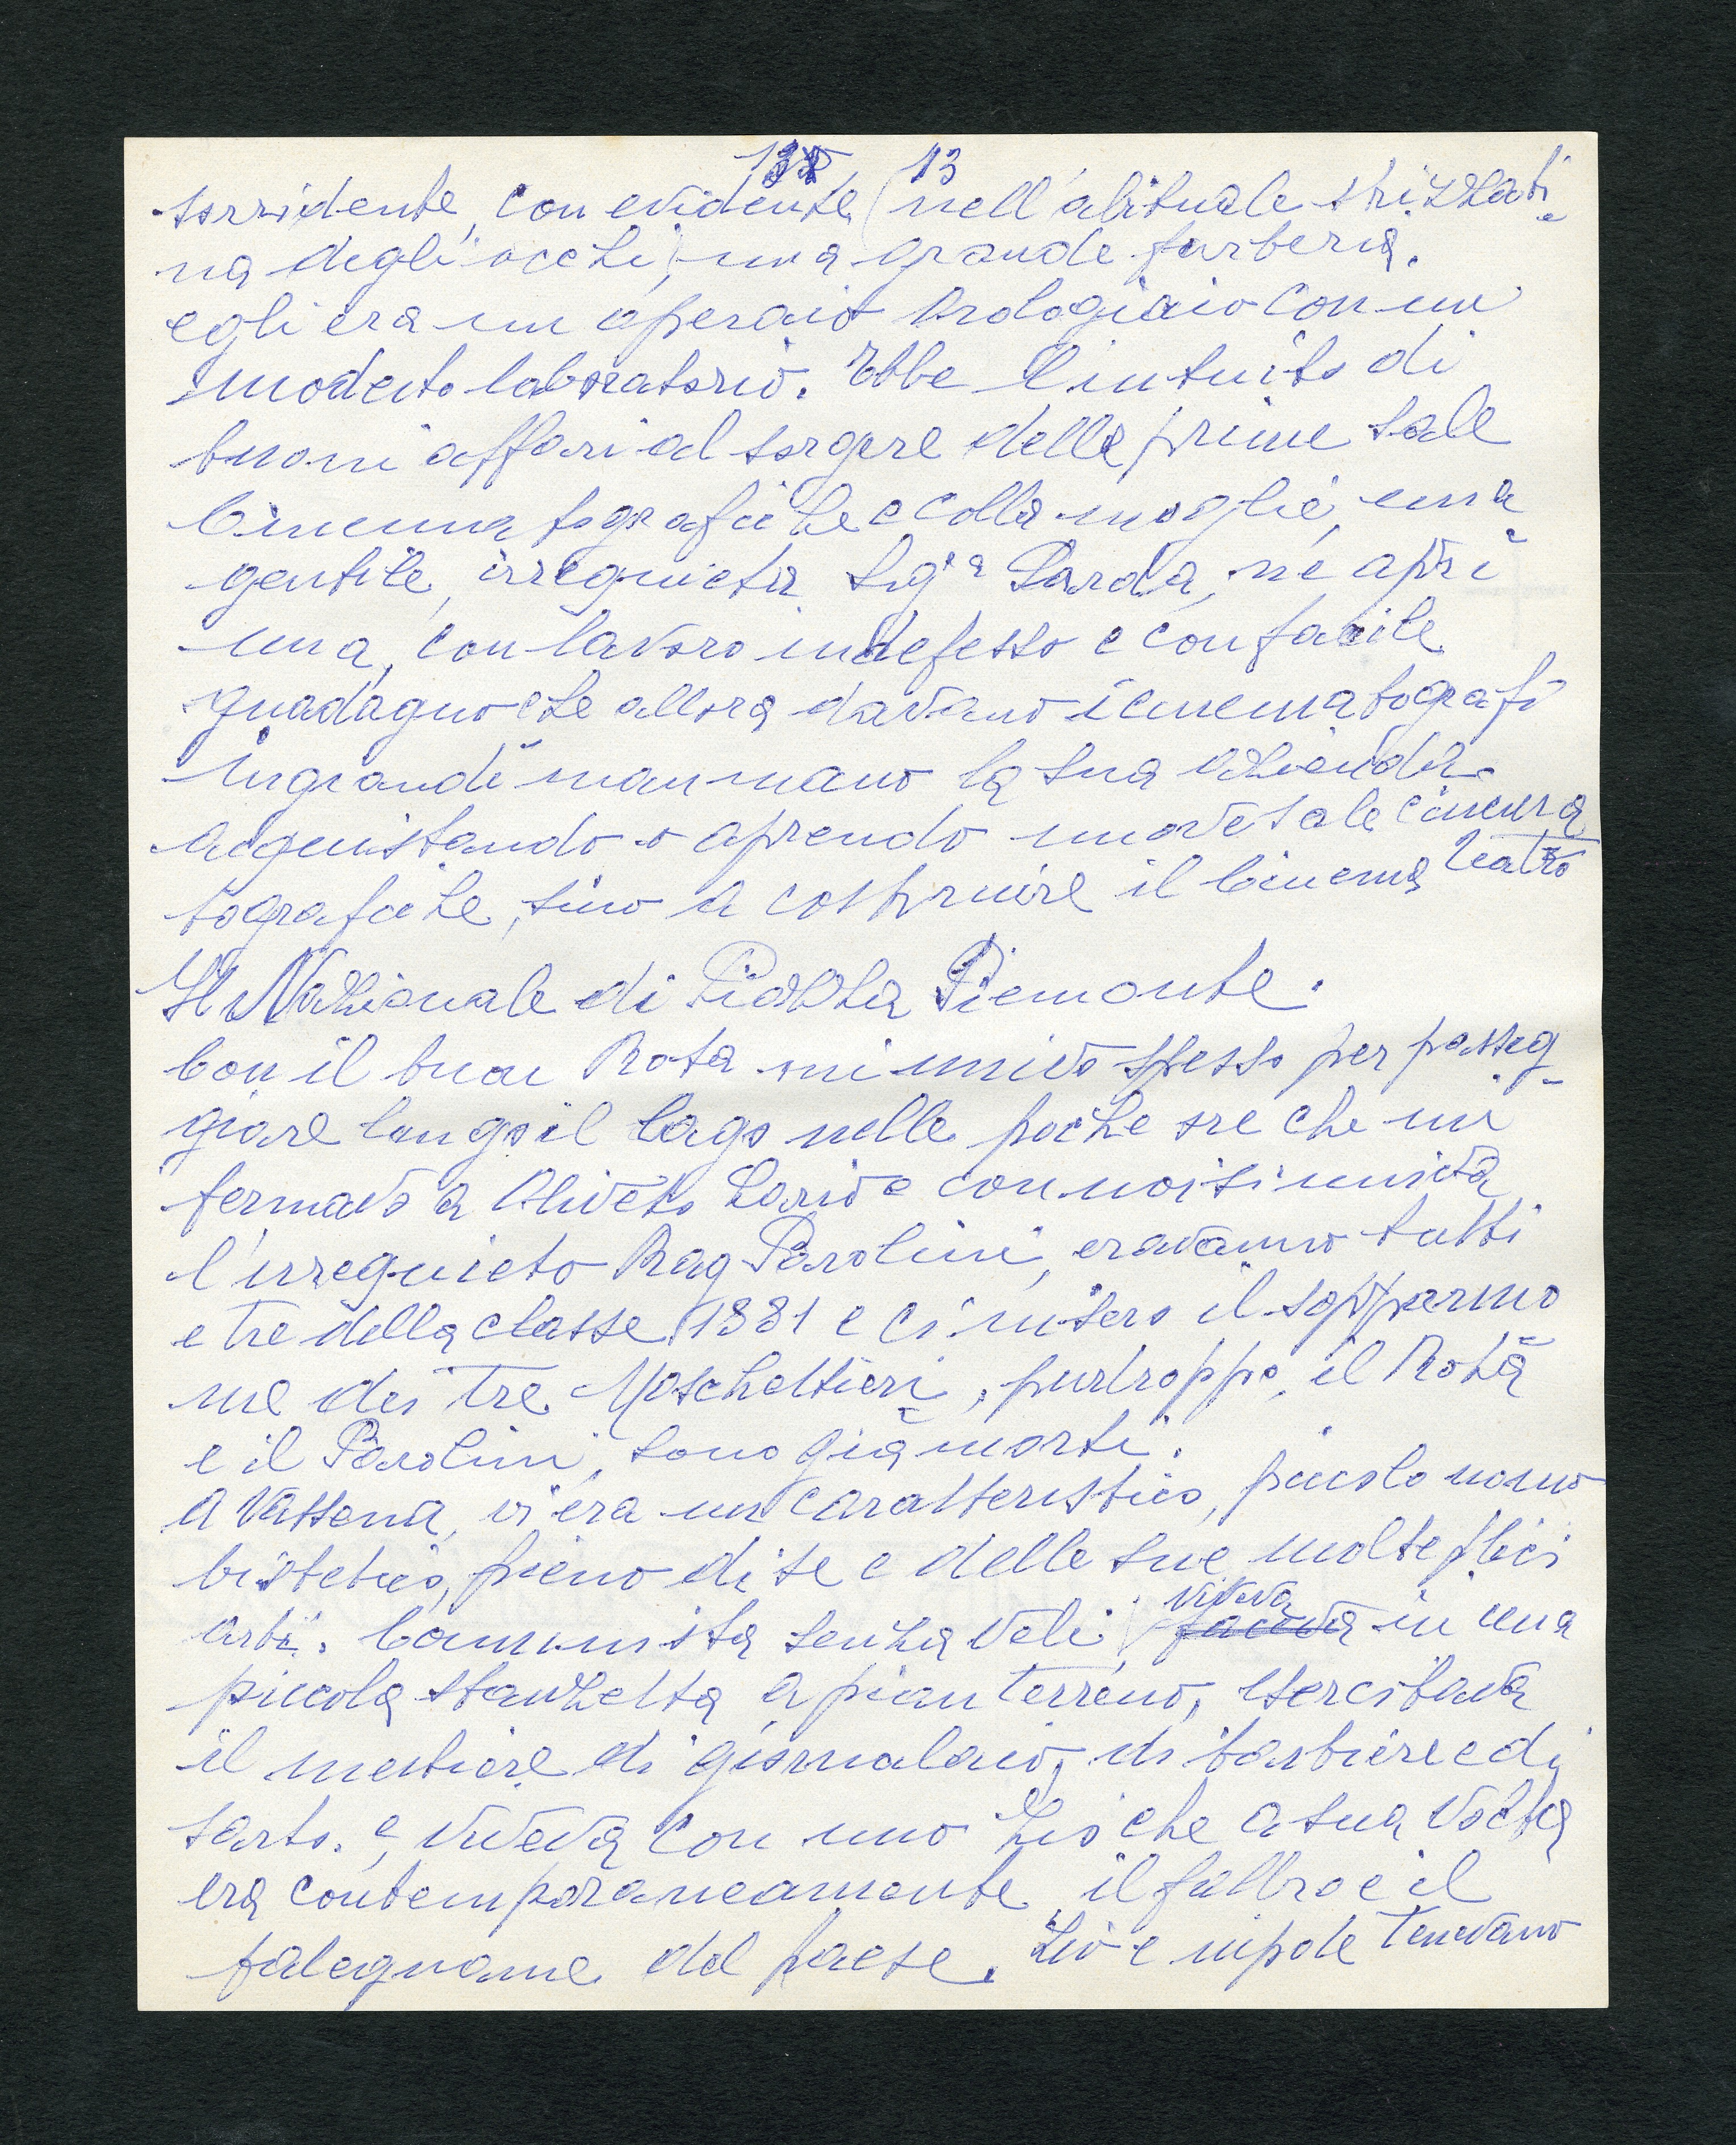 13
sorridente, con evidente (nell'abituale strizzati
na degli occhi) una grande furberia.
egli era un operaio orologiaio con un
modesto laboratorio. Ebbe l'intuito di
buoni affari al sorgere delle prime sale
Cinematografiche e colla moglie, una
gentile, irrequieta Sigª Sarda, ne aprì
una, con lavoro indefesso e con facile
guadagno che allora davano i cinematografi
ingrandì man mano la sua azienda
acquistando o aprendo nuove sale cinema
tografiche, sino a costruire il Cinema Teatro
Il Nazionale di Piazza Piemonte.
Con il buon Rota mi univo spesso per passeg
giare lungo il lago nelle poche ore che mi
fermavo a Oliveto Lario e con noi si univa
l'irrequieto Rag Parolini, eravamo tutti
e tre della classe 1881 e ci misero il soprarno
me dei tre Moschettieri, purtroppo, il Rota
e il Parolini, sono già morti.
A Vassena, vi era un caratteristico, piccolo uomo
bisbetico, pieno di se e delle sue molteplici
arti. Comunista senza veli, viveva in una
piccola stanzetta a pian terreno, esercitava
il mestiere di giornalaio, di barbiere e di
sarto. e, viveva con uno Zio che a sua volta
era contemporaneamente il fabbro e il
falegname del paese. Zio e nipote tenevano